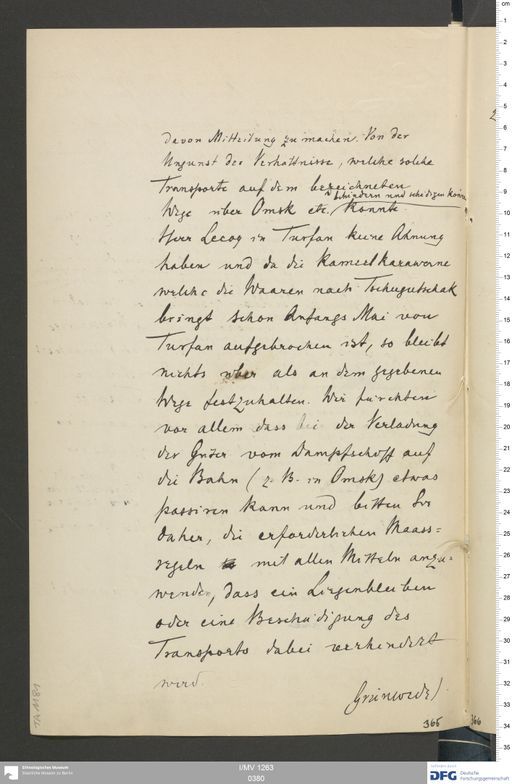 davon Mitteilung zu machen. Von der
Ungunst der Verhältnisse, welche solche
Transporte auf dem bezeichneten
behindern und schädigen können,
Wege über Omsk etc. konnte
Herr Lecoq in Turfan keine Ahnung
haben und da die Kameelkarawane
welche die Waaren nach Tschugutschak
bringt schon Anfangs Mai von
Turfan aufgebrochen ist, so bleibt
nichts über als an dem gegebenen
Wege festzuhalten. Wir fürchten
vor allem dass bei der Verladung
der Güter vom Dampfschiff auf
die Bahn (z. B. in Omsk) etwas
passiren kann und bitten Sie
daher, die erforderlichen Maass=
regeln mit allen Mitteln anzu=
wenden, dass ein Liegenbleiben
oder eine Beschädigung des
Transports dabei verhindert
wird.
Grünwedel
366
366
TA 1181
Ethnologisches Museum
Staatliche Museen zu Berlin
I/MV 1263
0380
DFG Deutsche
Forschungsgemeinschaft